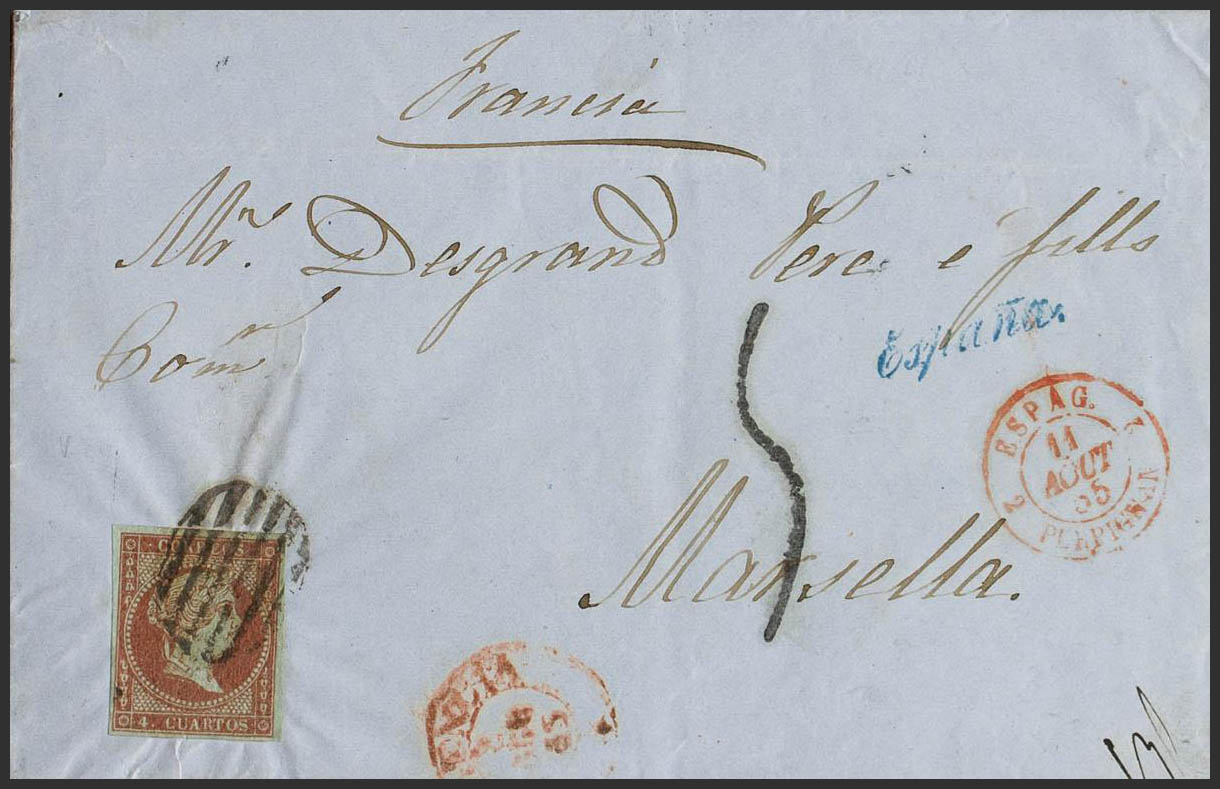 Francia
Mr. Desgrand Pere e fills
Comr
España.
ESPAG.
2 PERPIGNAN 2
11
AOUT
55
Marsella.
CORREOS
4. CUARTOS
5